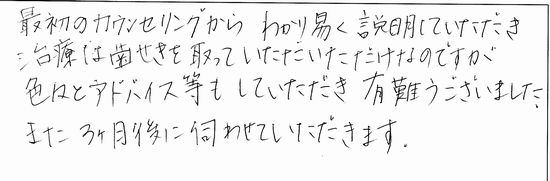 最初のカウンセリングから わかり易く説明していただき
治療は歯せきを取っていただいただけなのですが
色々とアドバイス等もしていただき 有難うございました。
また3ヶ月後に伺わせていただきます。